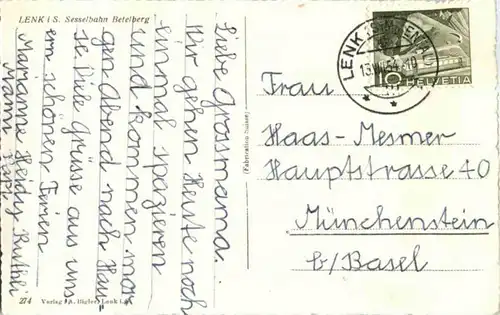 LENK i S. Sesselbahn Betelberg
Liebe Grossmama.
Wir gehen Heute noch
einmal spazieren
und kommen mor
gen abend nach Hau-
se. Viele Grüsse aus uns
ern schönen Ferien
Marianne Heidy Ruthli
Mami Papi
274 Verlag Lenk i. S.
(Fabrication Suisse)
LENK
10
HELVETIA
Frau
Haas-Mesmer
Hauptstrasse 40
Münchenstein
b/Basel